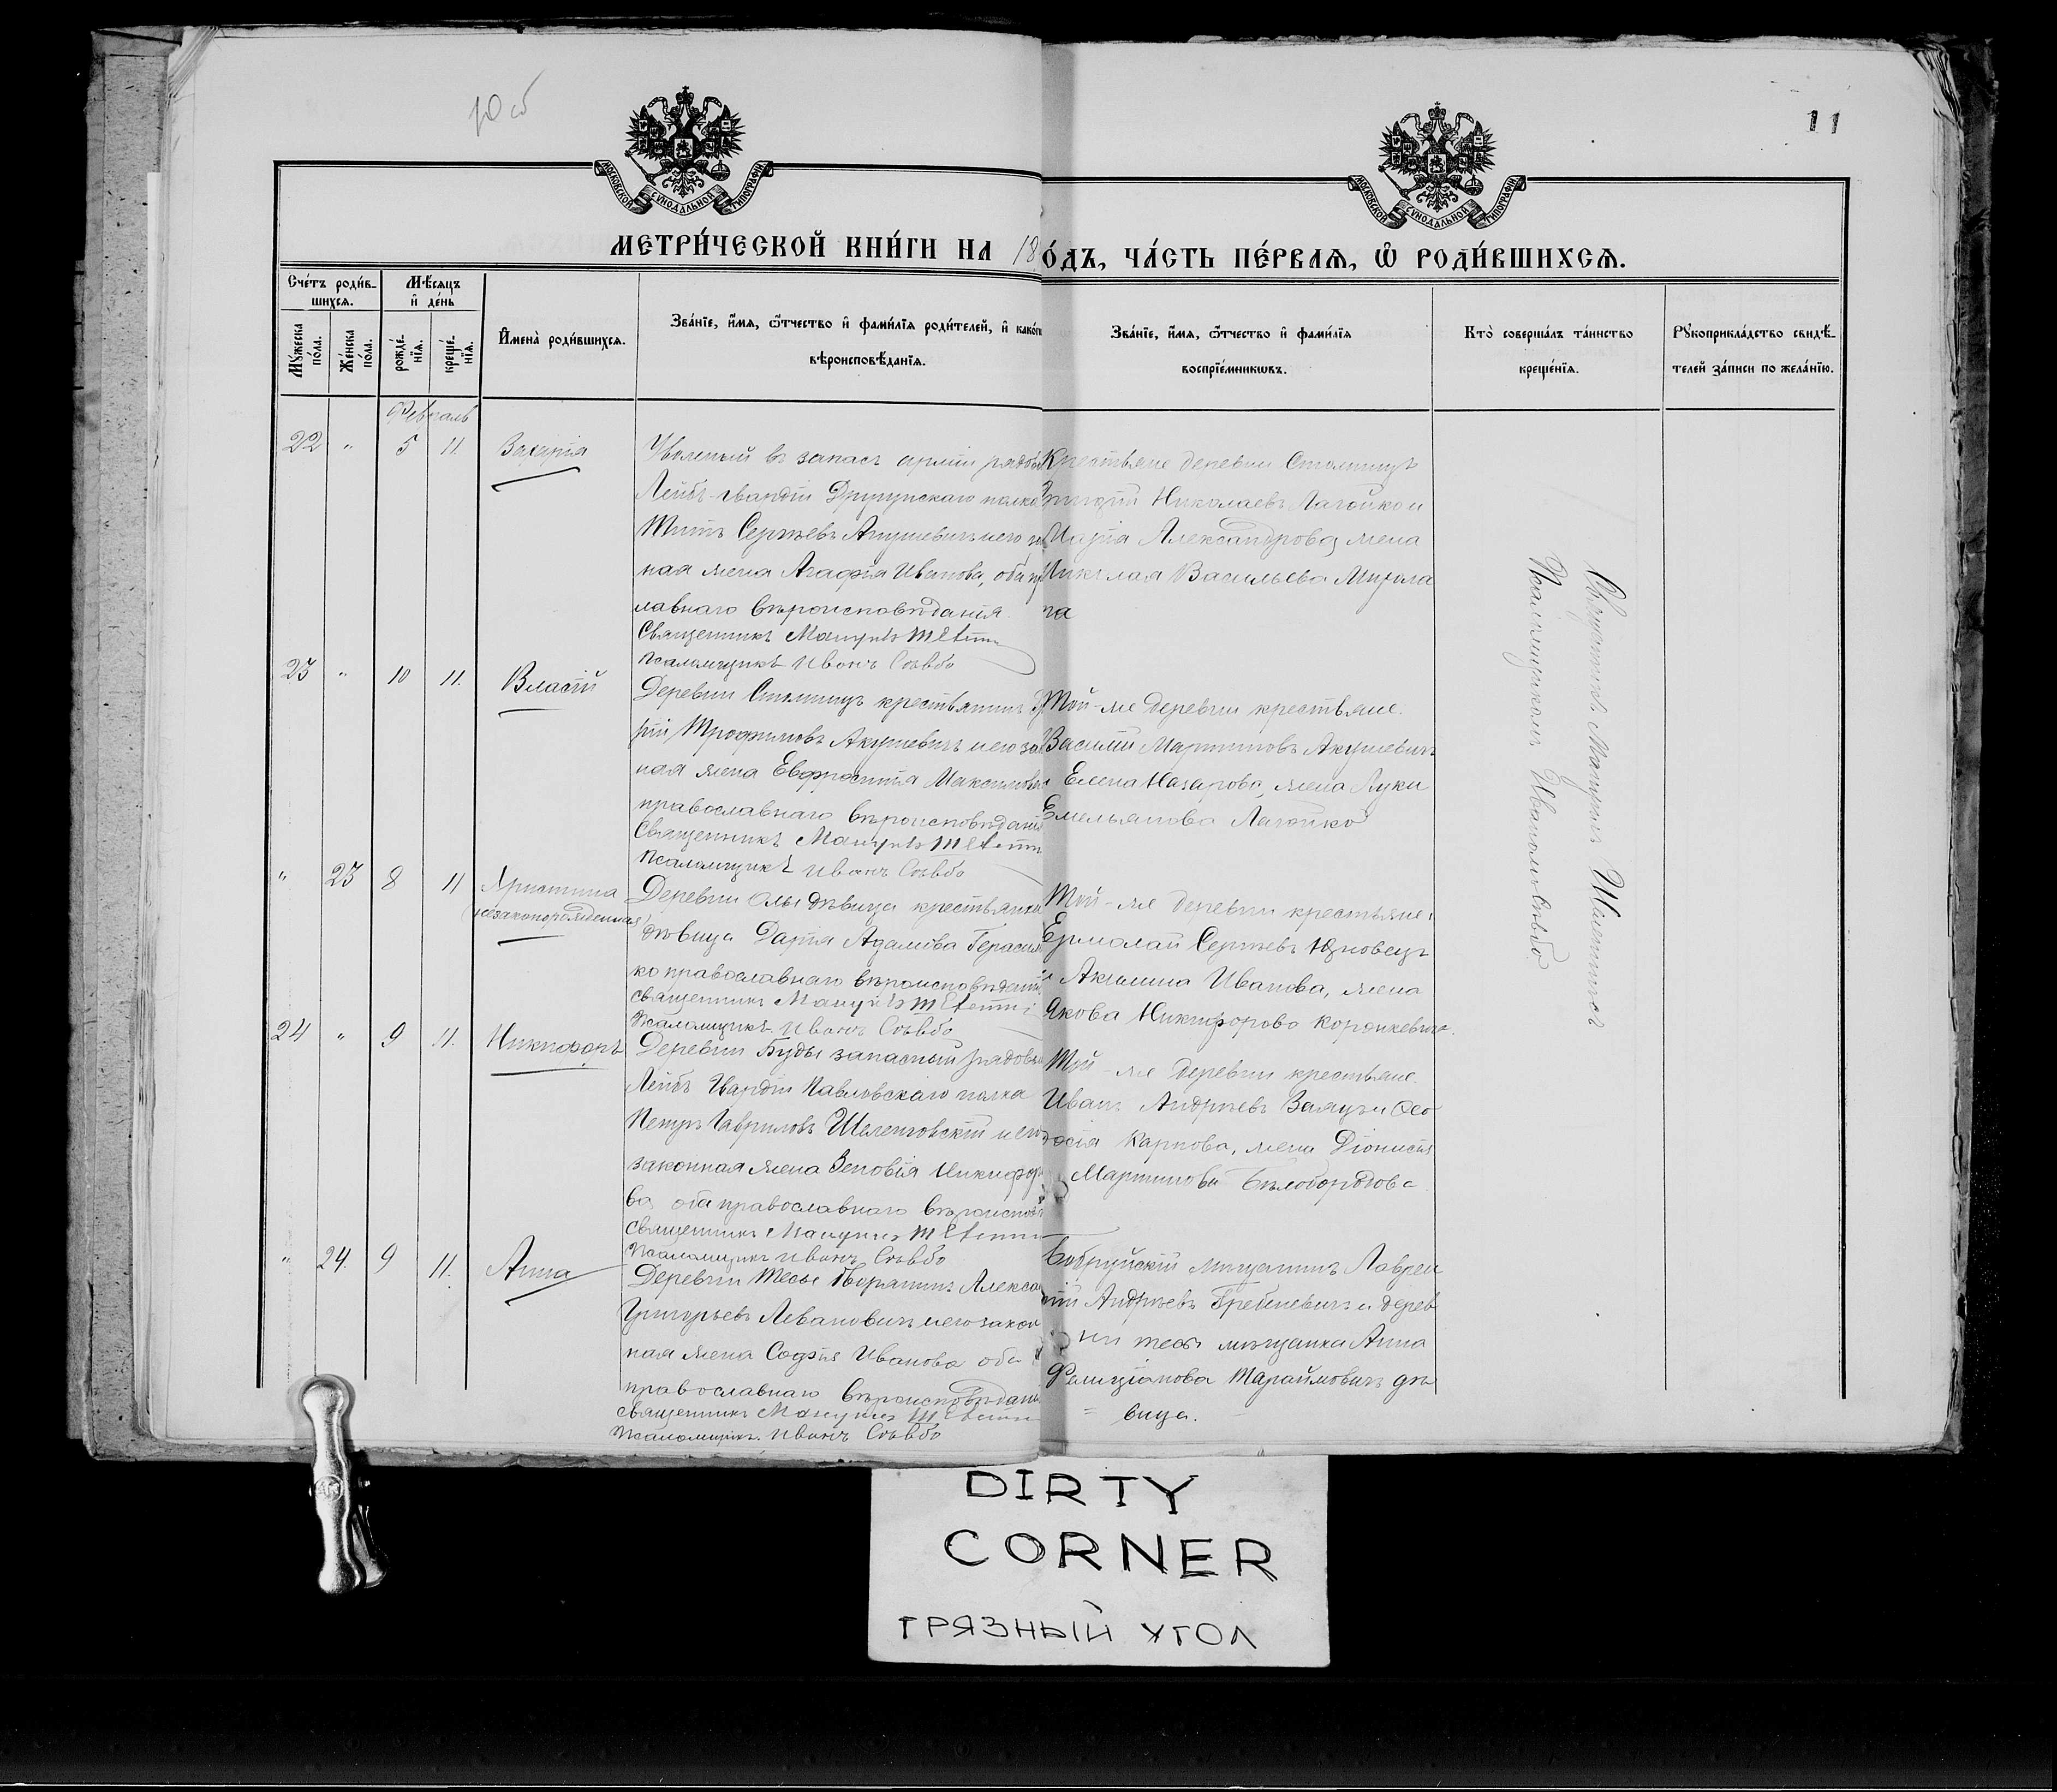 10 об
11
МОСКОВСКОЙ СѴНОДАЛЬНОЙ ТИПОГРАФІИ
МОСКОВСКОЙ СѴНОДАЛЬНОЙ ТИПОГРАФІИ
МЕТРИ́ЧЕСКОЙ КНИ́ГИ НА 18
О́ДЪ, ЧА́СТЬ ПЕ́РВАѦ, Ѽ РОДИ́ВШИХСѦ.
Сче́тъ роди́в-
шихсѧ.
Мѣ́сѧцъ
и҆ де́нь
Мꙋ́жеска
по́ла.
Же́нска
по́ла.
рожде́-
нїѧ.
креще́-
нїѧ.
И҆мена̀ роди́вшихсѧ.
Зва́нїе, и҆́мѧ, ѻ҆́тчество и҆ фами́лїѧ роди́телей, и҆ како́гѡ
вѣроисповѣ́данїѧ.
Зва́нїе, и҆́мѧ, ѻ҆́тчество и҆ фами́лїѧ
воспрїе́мникѡвъ.
Кто̀ соверша́лъ та́инство
креще́нїѧ.
Рꙋкоприкла́дство свидѣ́-
телей за́писи по жела́нїю.
Февраль
22 " 5 11 Захарія
Уволеный въ запасъ арміи рядов
Лейбъ-гвардіи Драгунскаго полка
Титъ Сергѣевъ Акушевичъ и его за
ная жена Агафія Иванова, оба п
лавнаго вѣроисповѣданія.
Священникъ
Псаломщикъ Иванъ
Крестьяне деревни
Николаевъ Лагойко и
Марія Александрова, жена
Николая Васильева
га
23 " 10 11. Власій
Деревни крестьянинъ
рій Трофимовъ Акушевичъ и его за
ная жена Евфросинія Максимова
православнаго вѣроисповѣданія
Священникъ
Псаломщикъ Иванъ
Той-же деревни крестьяне.
Василій Мартиновъ Акушевичъ
и Елена Назарова, жена Луки
Емельянова Лагойко
" 23 8 11 Христина
(незаконорожденная)
Деревни Олы дѣвица крестьянка
дѣвица Дарія Адамова Герасим
ко православнаго вѣроисповѣданія
священникъ
Псаломщикъ Иванъ
Той-же деревни крестьяне:
Ермолай Сергѣевъ Юзновецъ
и Акилина Иванова, жена
Якова Никифорова Коронкевича.
24 " 9 11. Никифоръ
Деревни Буды запасный рядовой
Лейбъ Гвардіи Павловскаго полка
Петръ Гавриловъ Шелеговскій и его
законная жена Зеновія Никифоро
ва оба православнаго вѣроиспов
священникъ
Псаломщикъ Иванъ
Той-же деревни крестьяне.
Иванъ Андреевъ Заяцъ и Ѳео
досія Карпова, жена Діонисія
Мартинова Бѣлобородова
" 24. 9 11. Анна
Деревни Тесы дворянинъ Алекса
Григорьевъ Леванович и его закон
ная жена Софія Иванова оба
православнаго вѣроисповѣданія
священникъ
Псаломщикъ Иванъ
Бобруйскій мѣщанинъ Лаврен
тій Андреевъ Гребневичъ и дерев
ни Тесы мѣщанка Анна
Фелиціанова Тараймовичъ дѣ
= вица.
Священникъ
Псаломщикомъ Иваномъ
DIRTY
CORNER
ГРЯЗНЫЙ УГОЛ